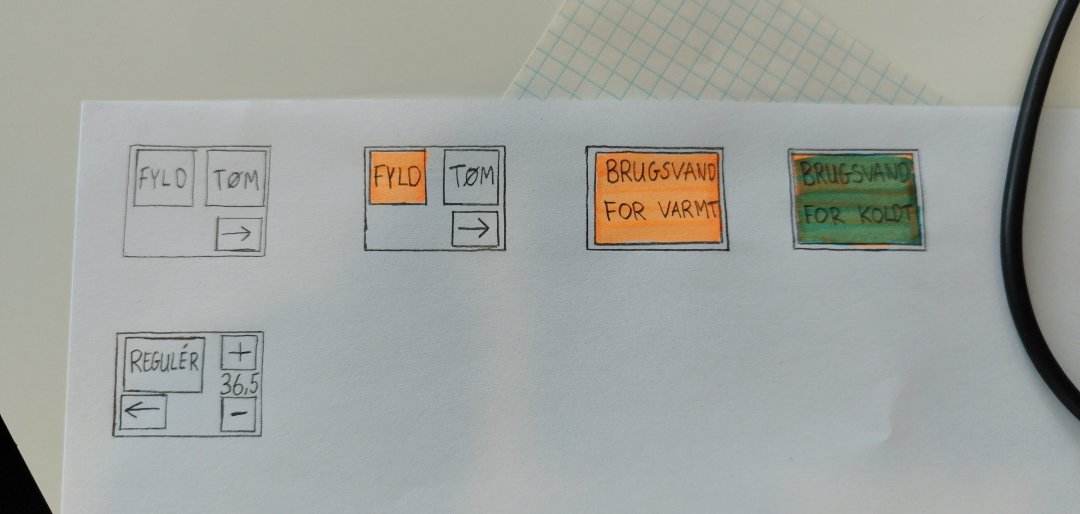 FYLD TØM
→
FYLD TØM
→
BRUGSVAND
FOR VARMT
BRUGSVAND
FOR KOLDT
REGULÉR +
36,5
← -